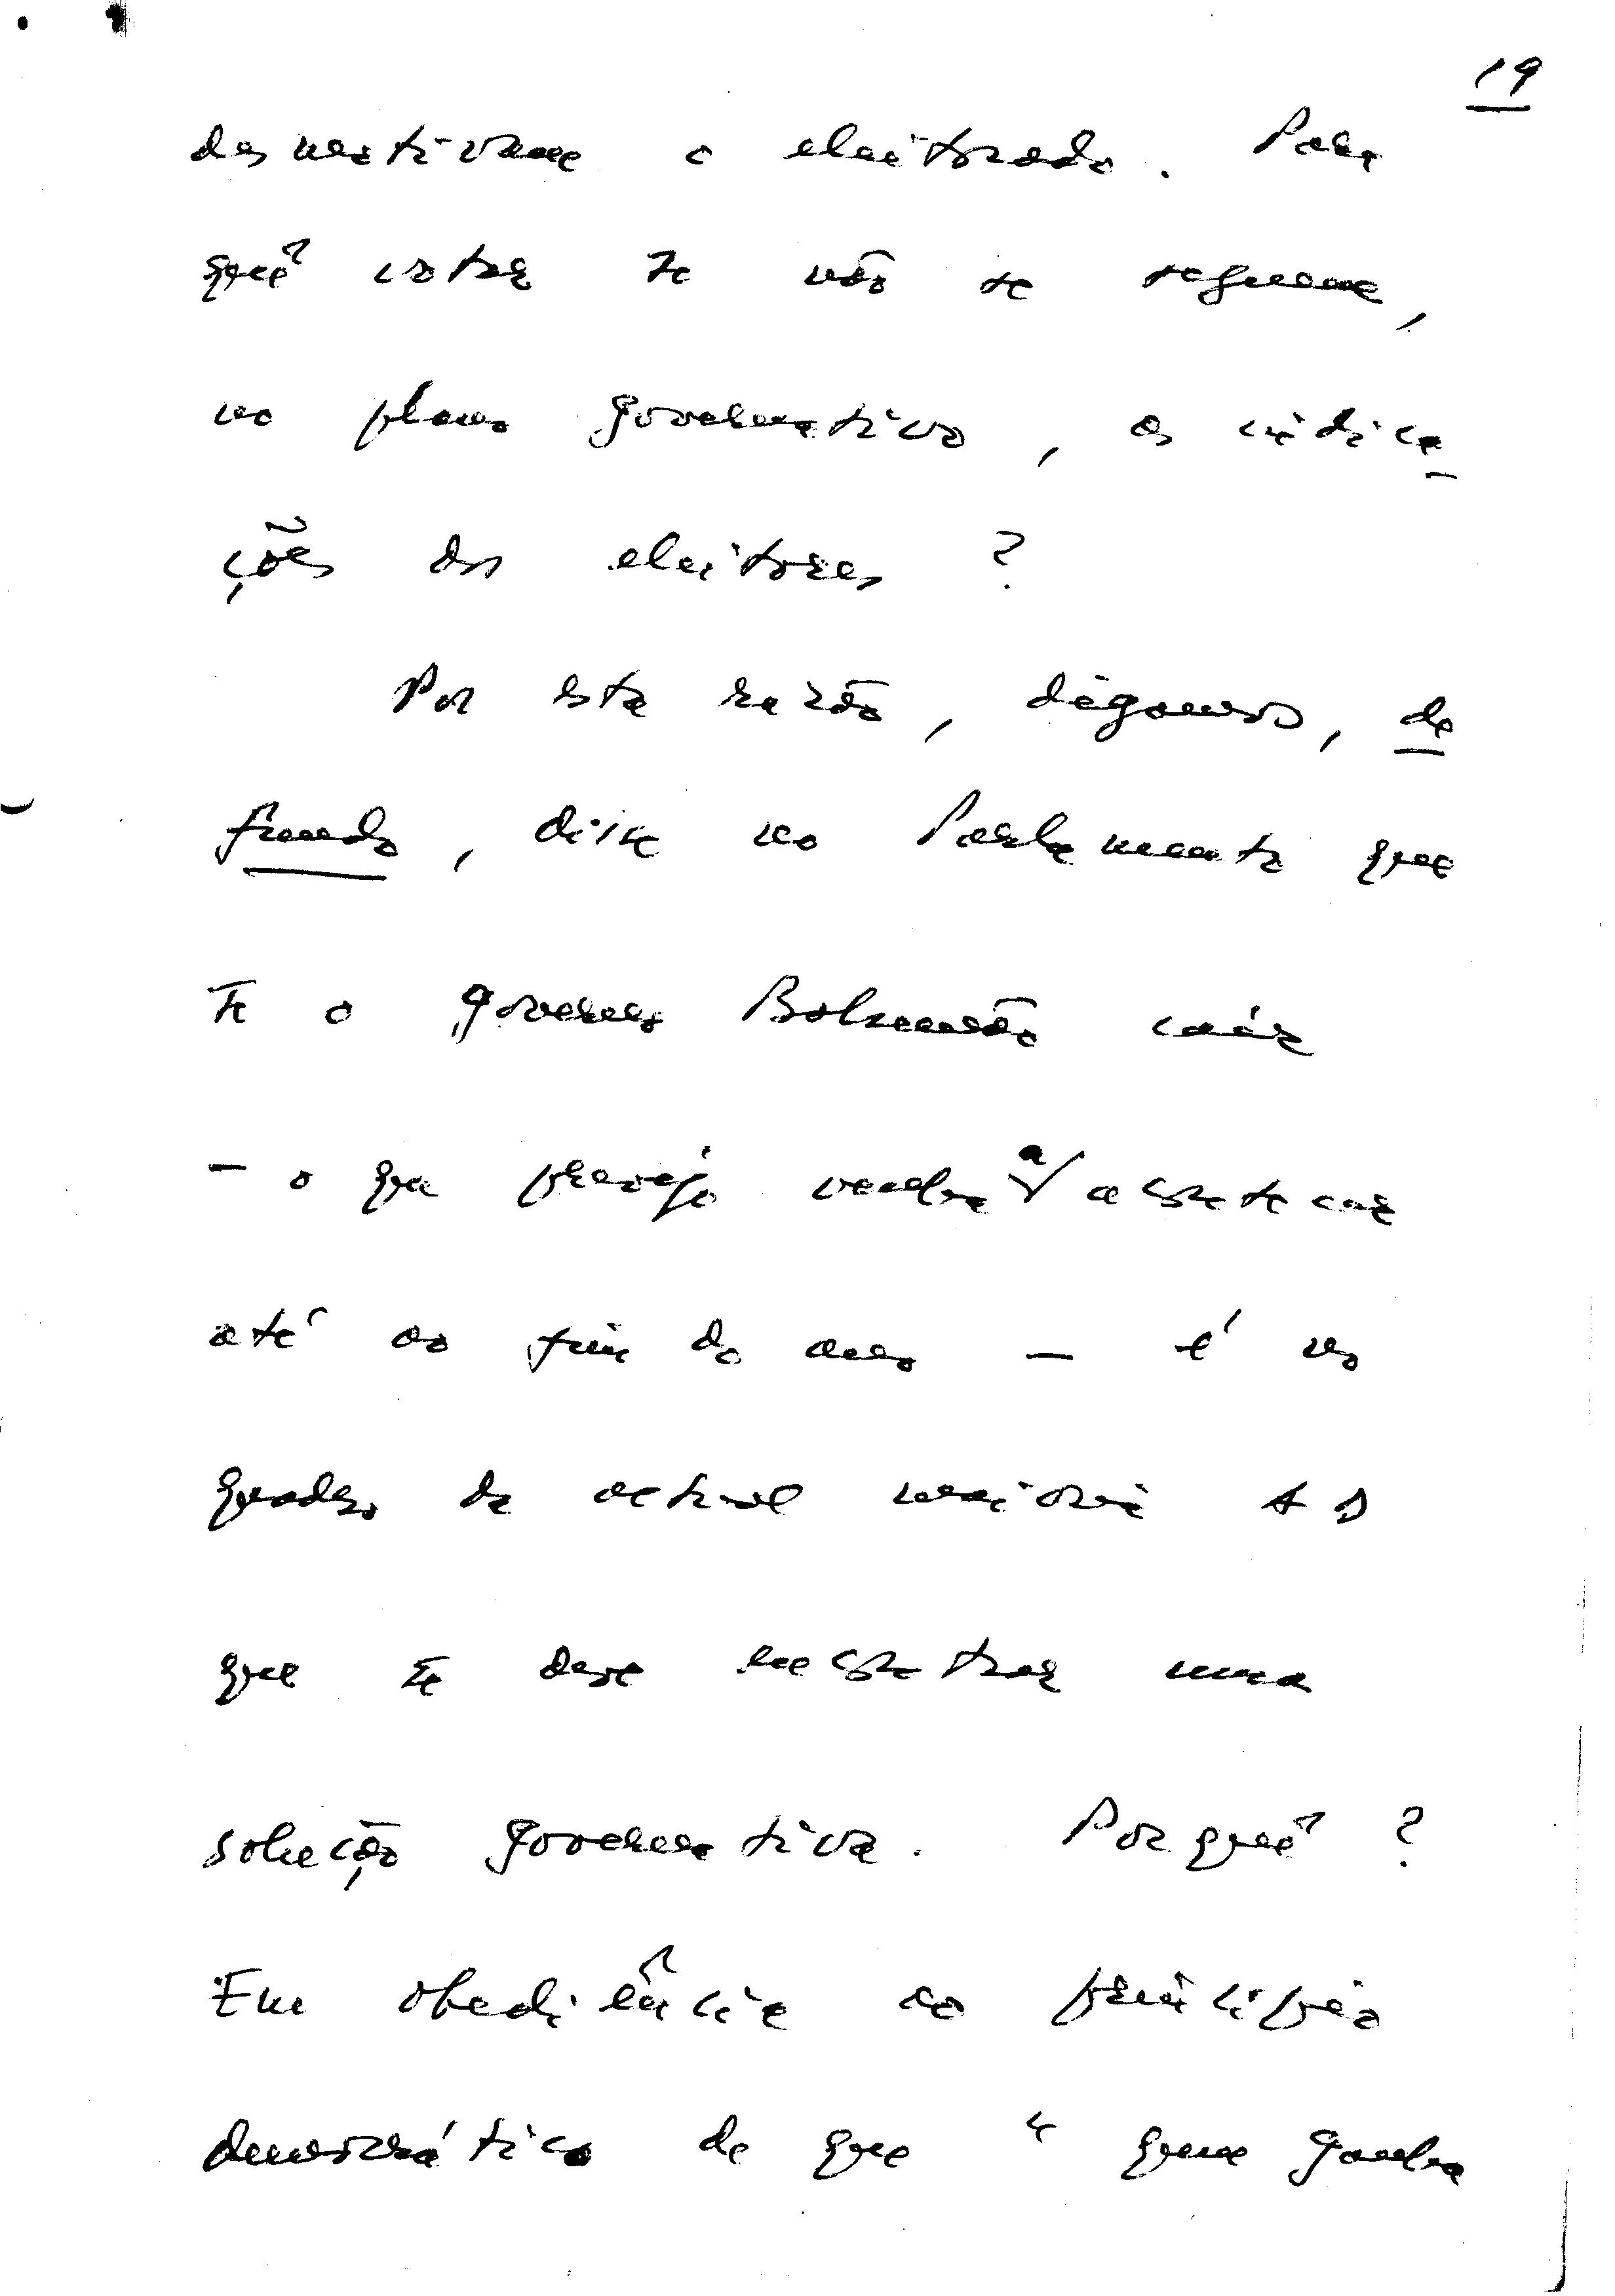 19
desmotivam o eleitorado. Para
quê votar se não se seguem,
no plano governativo, as indica-
ções dos eleitores ?
Por esta razão, digamos, de
fundo, disse no Parlamento que
se o governo Balsemão caír
- o que prevejo venha a acontecer
até ao fim do ano - é no
quadro da actual maioria AD
que se deve encontrar uma
solução governativa. Porquê ?
Em obediência ao princípio
democrático de que "quem ganha